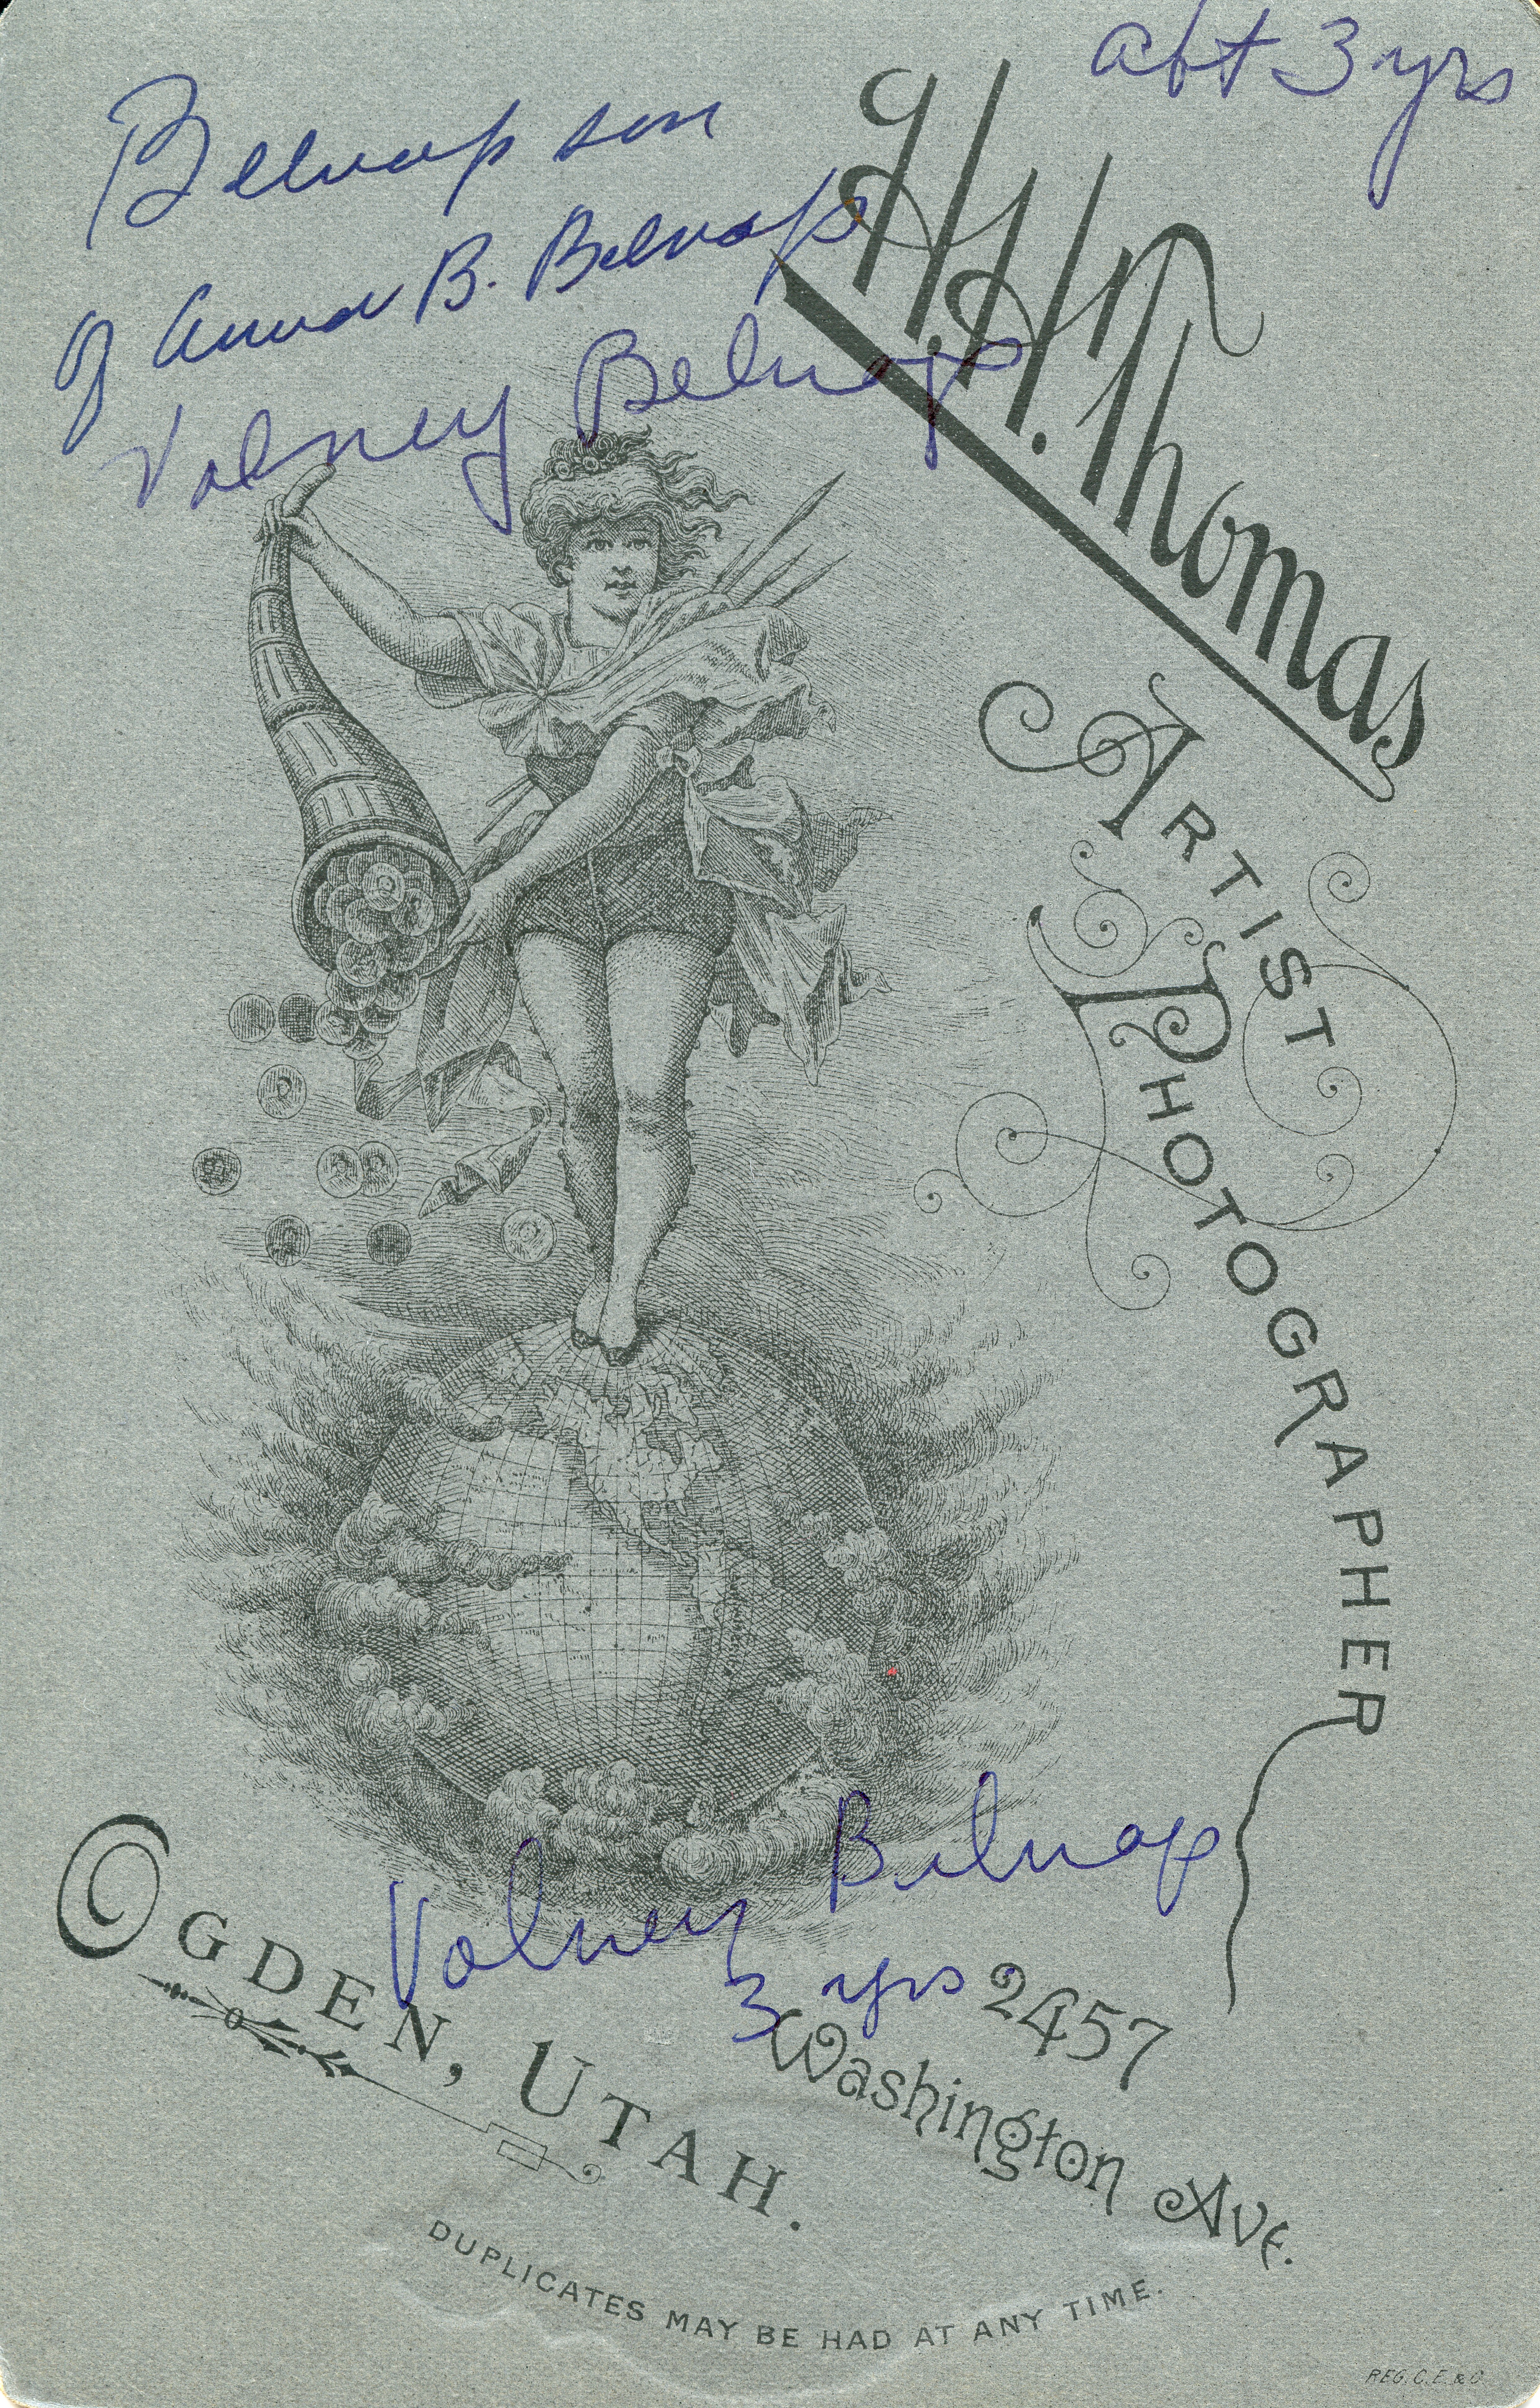 abt 3 yrs
Belnap son
of Anna B. Belnap
Volney Belnap
H.H. Thomas
ARTIST
PHOTOGRAPHER
Volney Belnap
3 yrs
OGDEN, UTAH.
2457
Washington Ave.
DUPLICATES MAY BE HAD AT ANY TIME.
REG. C. E. & C